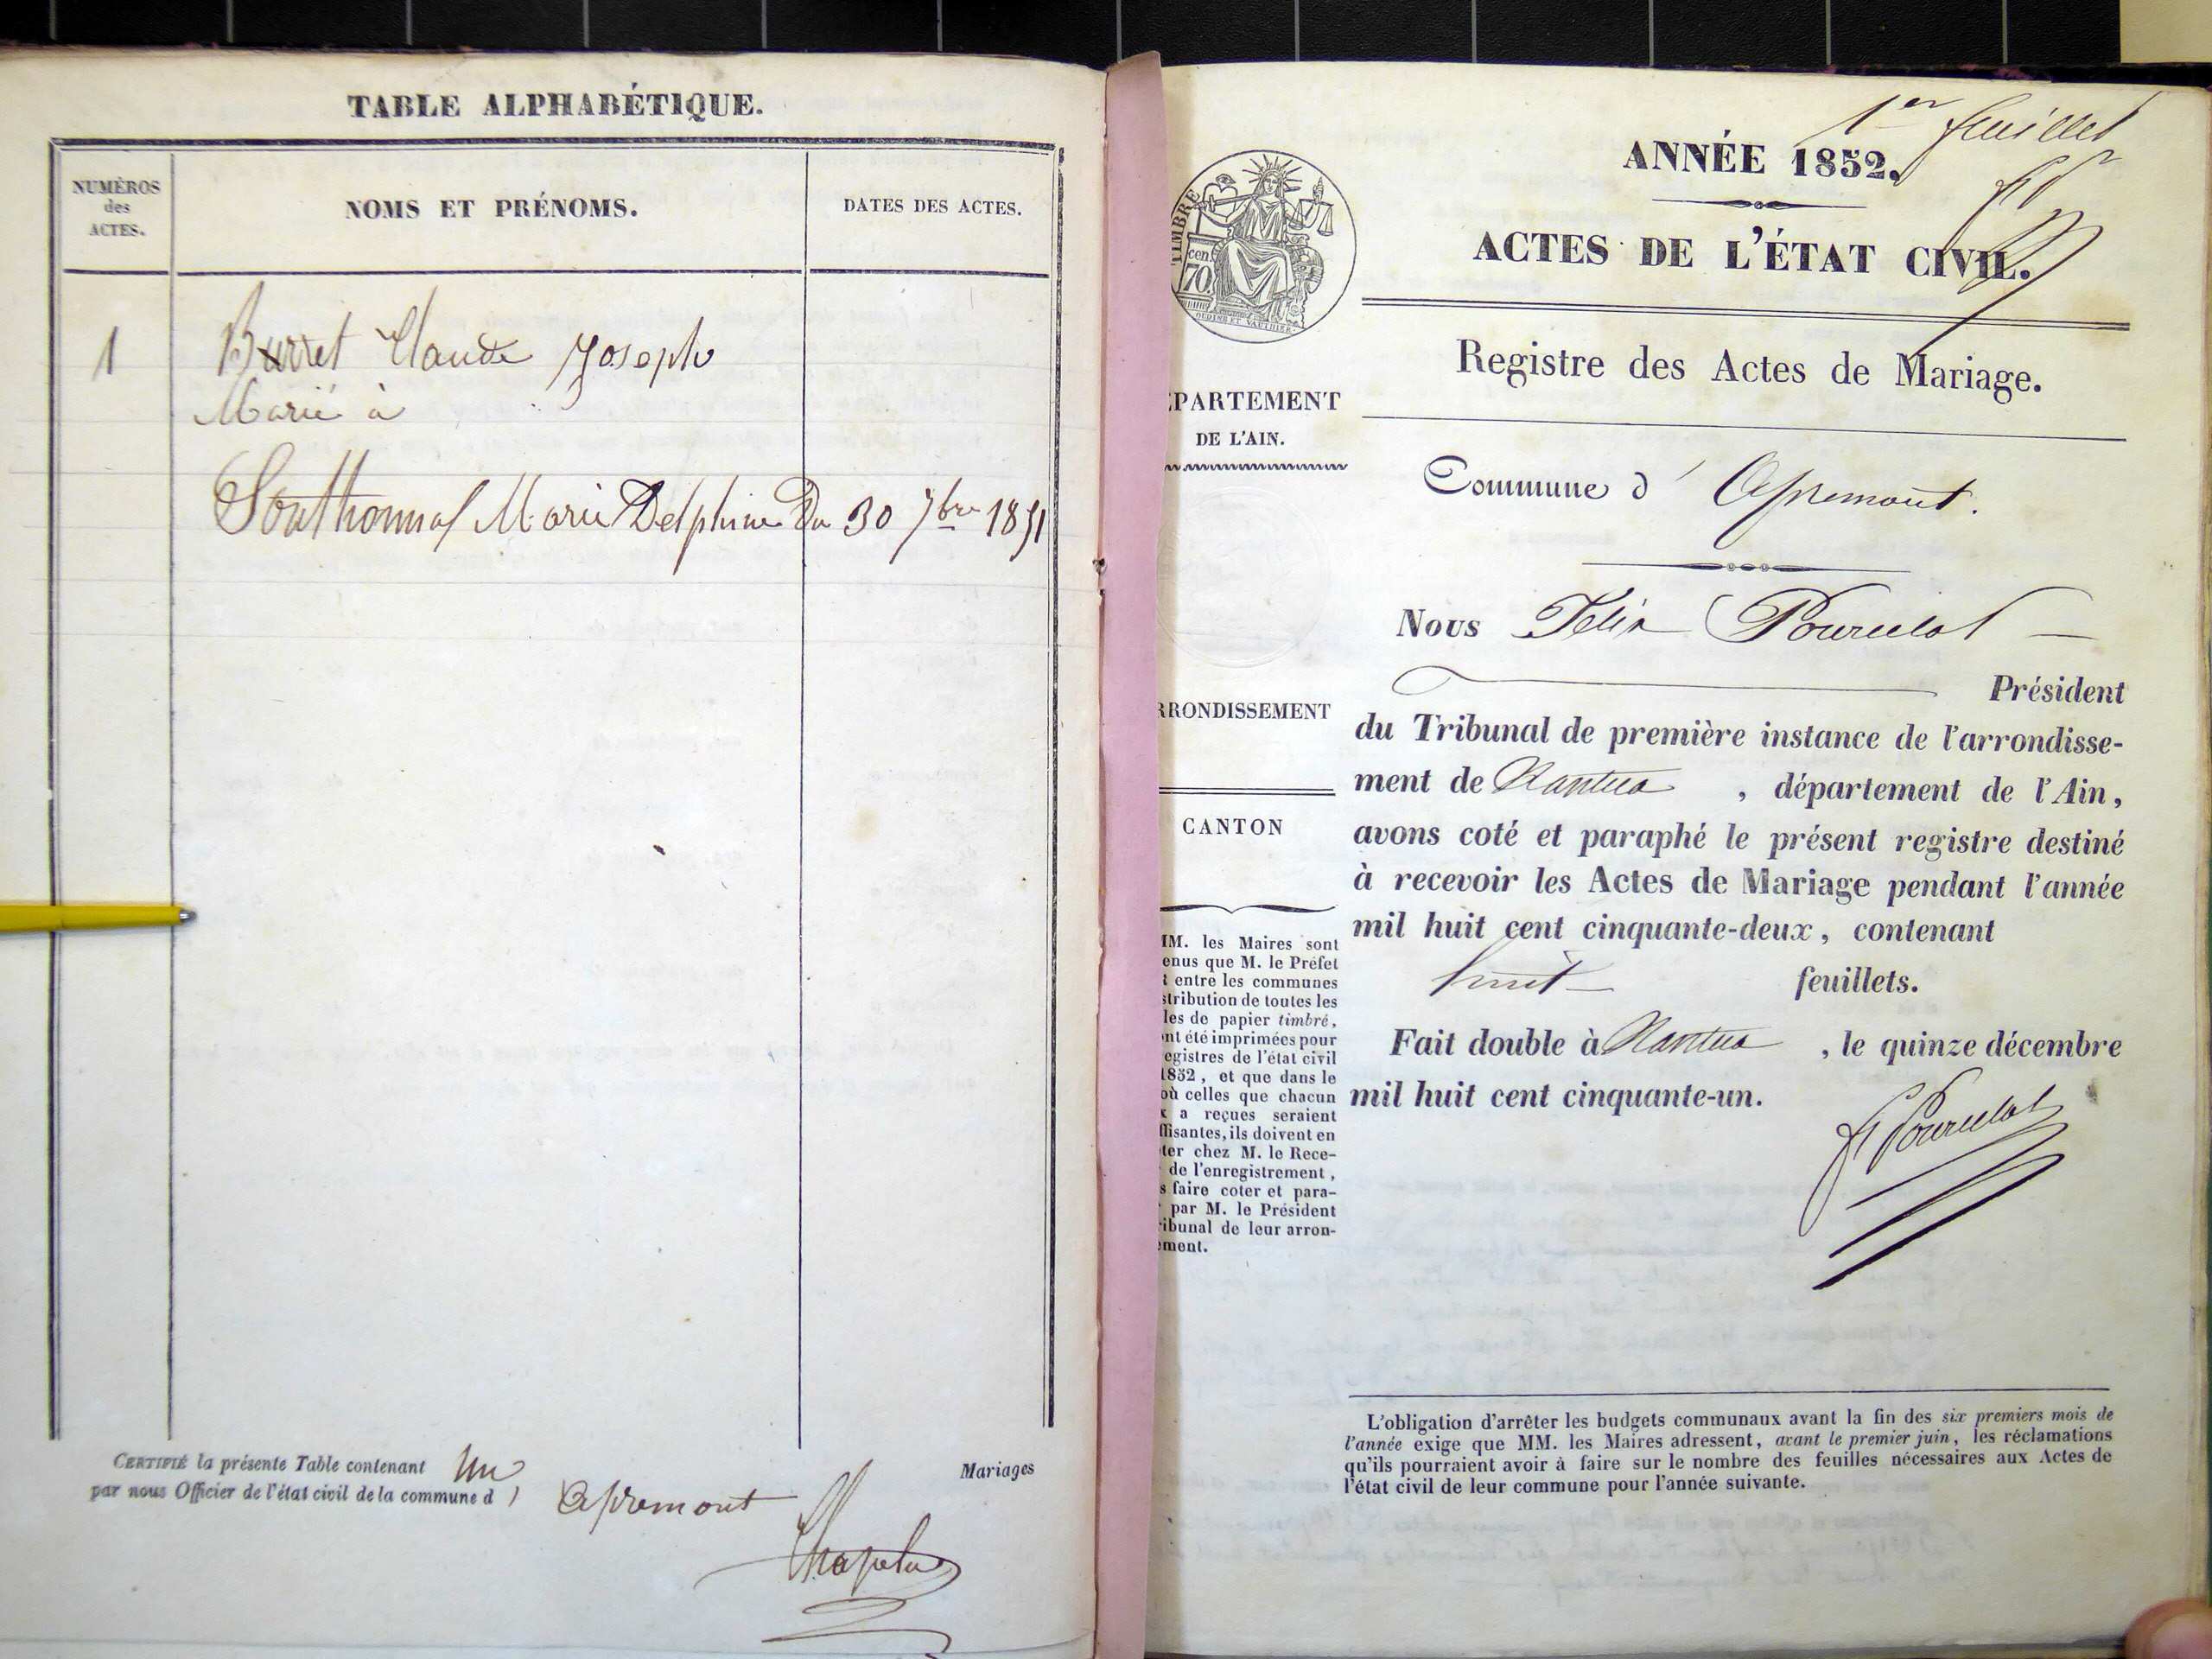 TABLE ALPHABÉTIQUE.
NUMÉROS
des
ACTES.
NOMS ET PRÉNOMS.
DATES DES ACTES.
1
Burret Claude Joseph
Marié à
Southonnax Marie Delphine Du 30 7bre 1851
CERTIFIÉ la présente Table contenant Un Mariages
par nous Officier de l'état civil de la commune d' Apremont
Chapelu
1er feuillet
ANNÉE 1852.
ACTES DE L'ÉTAT CIVIL.
Registre des Actes de Mariage.
TIMBRE
70 cen.
PARTEMENT
DE L'AIN.
RRONDISSEMENT
CANTON
MM. les Maires sont
enus que M. le Préfet
t entre les communes
stribution de toutes les
les de papier timbré,
ont été imprimées pour
egistres de l'état civil
1852, et que dans le
où celles que chacun
x a reçues seraient
ffisantes, ils doivent en
ter chez M. le Rece-
de l'enregistrement,
s faire coter et para-
par M. le Président
ribunal de leur arron-
ement.
Commune d' Apremont.
Nous Félix Pourcelot
Président
du Tribunal de première instance de l'arrondisse-
ment de Nantua, département de l'Ain,
avons coté et paraphé le présent registre destiné
à recevoir les Actes de Mariage pendant l'année
mil huit cent cinquante-deux, contenant
huit feuillets.
Fait double à Nantua, le quinze décembre
mil huit cent cinquante-un.
F. Pourcelot
L'obligation d'arrêter les budgets communaux avant la fin des six premiers mois de
l'année exige que MM. les Maires adressent, avant le premier juin, les réclamations
qu'ils pourraient avoir à faire sur le nombre des feuilles nécessaires aux Actes de
l'état civil de leur commune pour l'année suivante.